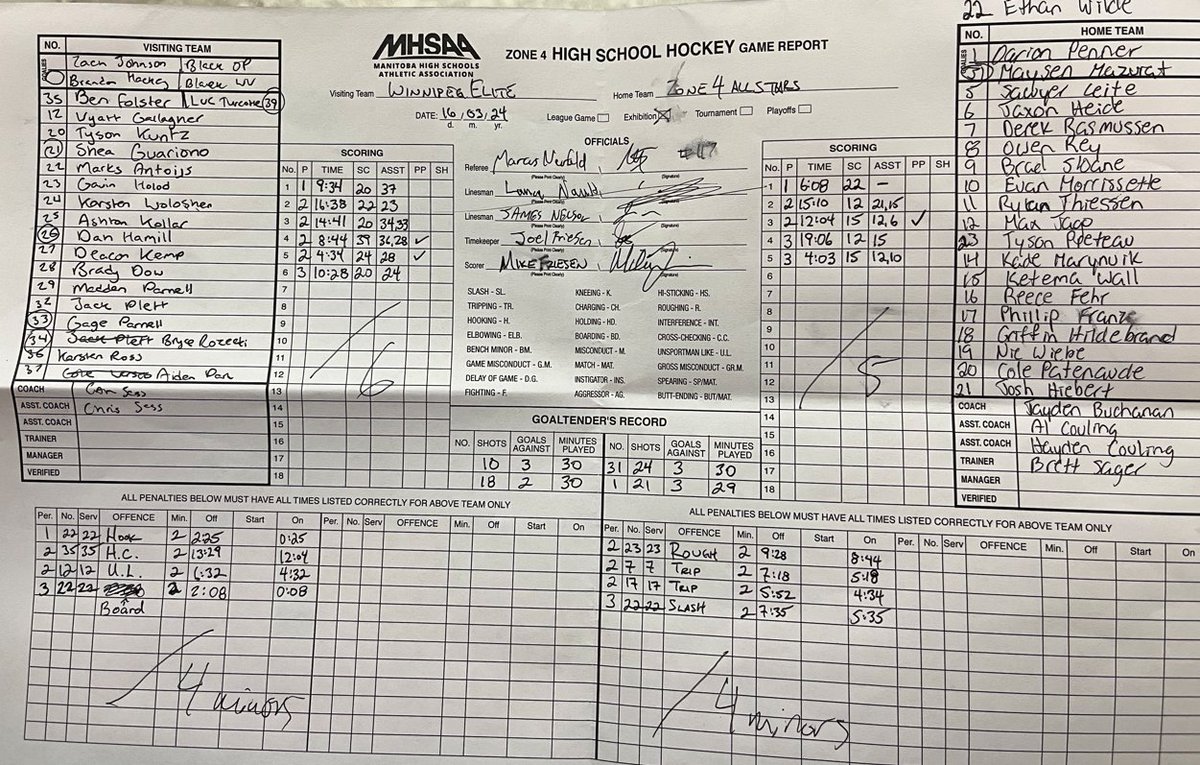 22 Ethan Wilde
MHSAA
MANITOBA HIGH SCHOOLS
ATHLETIC ASSOCIATION
ZONE 4 HIGH SCHOOL HOCKEY GAME REPORT
Visiting Team WINNIPEG ELITE Home Team ZONE 4 ALLSTARS
DATE: 16/03/24 League Game Exhibition X Tournament Playoffs
d. m. yr.
NO. VISITING TEAM
GOALIES
Zach Johnson Black OP
Brandon Black WV
35 Ben Folster Luc Turcotte 39
12 Wyatt Gallagher
20 Tyson Kuntz
21 Shea Guariono
22 Marks Antoijs
23 Gavin Holod
24 Karsten Woloshen
25 Ashton Kollar
26 Dan Hamill
27 Deacon Kemp
28 Brady Dow
29 Madden Parnell
32 Jack Plett
33 Gage Parnell
34 Jack Plett Bryce Rozecki
36 Karsten Ross
37 Aiden Dan
COACH Cam Sess
ASST. COACH Chris Sess
ASST. COACH
TRAINER
MANAGER
VERIFIED
SCORING
No. P TIME SC ASST PP SH
1 1 9:34 20 37
2 2 16:38 22 23
3 2 14:41 20 34,33
4 2 8:44 39 36,28 ✓
5 2 4:34 24 28 ✓
6 3 10:28 20 24
7
8
9
10
11
12
13
14
15
16
17
18
6
OFFICIALS
Referee Marcus #17
(Please Print Clearly) (Signature)
Linesman
(Please Print Clearly) (Signature)
Linesman JAMES NELSON
(Please Print Clearly) (Signature)
Timekeeper Joel Friesen
(Please Print Clearly) (Signature)
Scorer MIKE FRIESEN
(Please Print Clearly) (Signature)
SLASH - SL. KNEEING - K. HI-STICKING - HS.
TRIPPING - TR. CHARGING - CH. ROUGHING - R.
HOOKING - H. HOLDING - HD. INTERFERENCE - INT.
ELBOWING - ELB. BOARDING - BD. CROSS-CHECKING - C.C.
BENCH MINOR - BM. MISCONDUCT - M. UNSPORTMAN LIKE - U.L.
GAME MISCONDUCT - G.M. MATCH - MAT. GROSS MISCONDUCT - GR.M.
DELAY OF GAME - D.G. INSTIGATOR - INS. SPEARING - SP/MAT.
FIGHTING - F. AGGRESSOR - AG. BUTT-ENDING - BUT/MAT.
GOALTENDER'S RECORD
NO. SHOTS GOALS AGAINST MINUTES PLAYED NO. SHOTS GOALS AGAINST MINUTES PLAYED
10 3 30 31 24 3 30
18 2 30 1 21 3 29
SCORING
No. P TIME SC ASST PP SH
1 1 6:08 22 –
2 2 15:10 12 21,15
3 2 12:04 15 12,6 ✓
4 3 19:06 12 15
5 3 4:03 15 12,10
7
8
9
10
11
12
13
14
15
16
17
18
5
NO. HOME TEAM
GOALIES
1 Darion Penner
31 Maysen Mazurat
5 Sawyer Leite
6 Jaxon Heide
7 Derek Rasmussen
8 Owen Rey
9 Brael Sloane
10 Evan Morrissette
11 Rylan Thiessen
12 Max Jago
23 Tyson Poeteau
14 Kade Marynuik
15 Ketema Wall
16 Reece Fehr
17 Phillip Franz
18 Griffin Hildebrand
19 Nic Wiebe
20 Cole Patenaude
21 Josh Hiebert
COACH Jayden Buchanan
ASST. COACH Al Couling
ASST. COACH Hayden Couling
TRAINER Brett Sager
MANAGER
VERIFIED
ALL PENALTIES BELOW MUST HAVE ALL TIMES LISTED CORRECTLY FOR ABOVE TEAM ONLY
Per. No. Serv OFFENCE Min. Off Start On Per. No. Serv OFFENCE Min. Off Start On
1 22 22 Hook 2 2:25 0:25
2 35 35 H.C. 2 13:29 12:04
2 12 12 U.L. 2 6:32 4:32
3 22 22 Board 2 2:08 0:08
4 minors
ALL PENALTIES BELOW MUST HAVE ALL TIMES LISTED CORRECTLY FOR ABOVE TEAM ONLY
Per. No. Serv OFFENCE Min. Off Start On Per. No. Serv OFFENCE Min. Off Start On
2 23 23 ROUGH 2 9:28 8:44
2 7 7 TRIP 2 7:18 5:18
2 17 17 TRIP 2 5:52 4:34
3 22 22 SLASH 2 7:35 5:35
4 minors